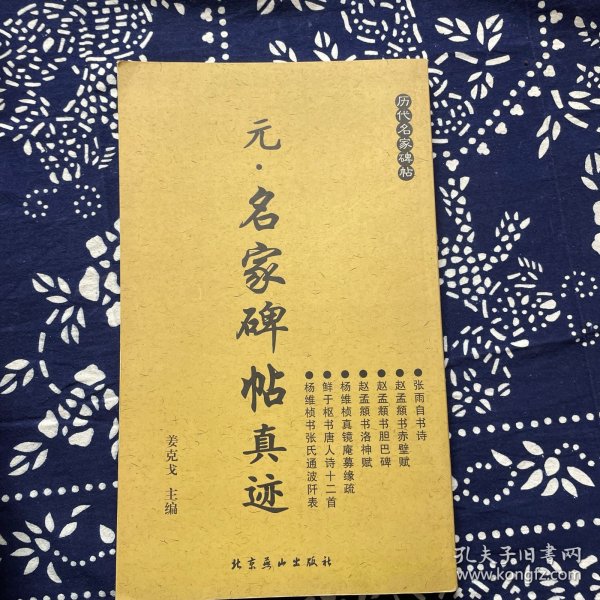 历代名家碑帖
元·名家碑帖真迹
●张雨自书诗
●赵孟頫书赤壁赋
●赵孟頫书胆巴碑
●赵孟頫书洛神赋
●杨维桢真镜庵募缘疏
●鲜于枢书唐人诗十二首
●杨维桢书张氏通波阡表
姜克戈 主编
北京燕山出版社
孔夫子旧书网
www.kongfz.com